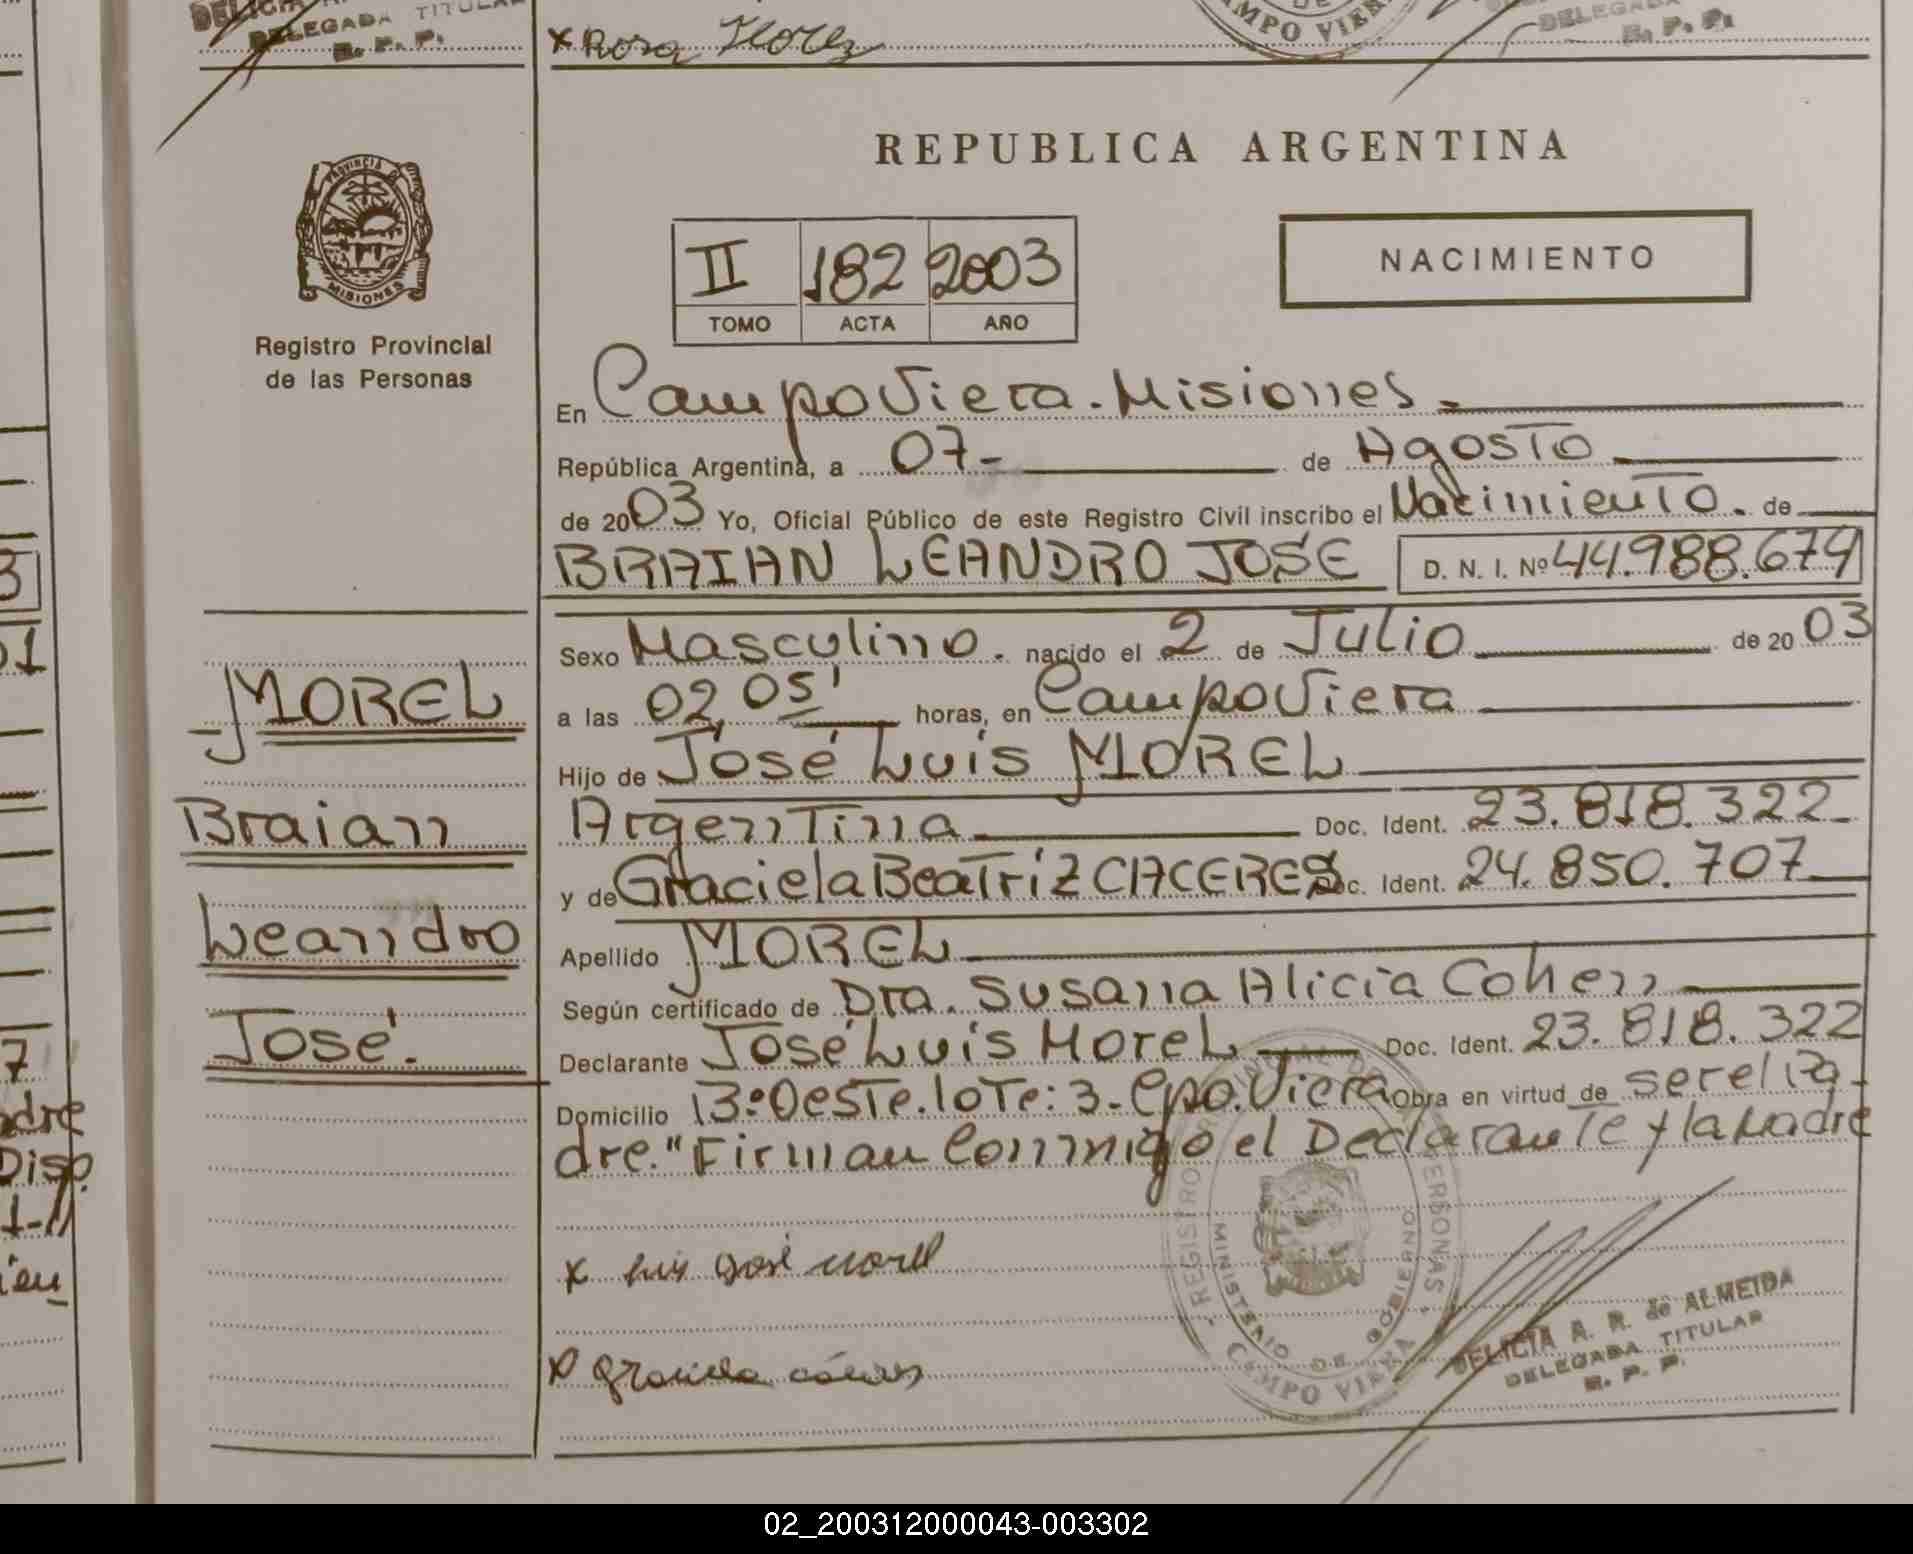 DELEGADA TITULAR
R. P. P.
x Rosa Florez
CAMPO VIERA
DELEGADA
R. P. P.
PROVINCIA DE
MISIONES
Registro Provincial
de las Personas
REPUBLICA ARGENTINA
II 182 2003
TOMO ACTA AÑO
NACIMIENTO
En Campo Viera. Misiones.-
República Argentina, a 07- de Agosto
de 2003 Yo, Oficial Público de este Registro Civil inscribo el Nacimiento. de
BRAIAN LEANDRO JOSÉ D. N. I. Nº 44.988.674
Sexo Masculino. nacido el 2 de Julio de 20 03
a las 02,05' horas, en Campo Viera
Hijo de José Luis MOREL
Argentina Doc. Ident. 23.818.322-
y de Graciela Beatriz CACERES Doc. Ident. 24.850.707
Apellido MOREL
Según certificado de Dra. Susana Alicia Cohen
Declarante José Luis Morel Doc. Ident. 23.818.322
Domicilio 13º Oeste. lote: 3- Cpo. Viera Obra en virtud de ser el Pa-
dre." Firman Conmigo el Declarante y la Madre
-MOREL
Braian
Leandro
José.
x luis José morel
x graciela cáceres
REGISTRO PROVINCIAL DE LAS PERSONAS
MINISTERIO DE GOBIERNO
CAMPO VIERA
DELICIA A. R. de ALMEIDA
DELEGADA TITULAR
R. P. P.
02_200312000043-003302